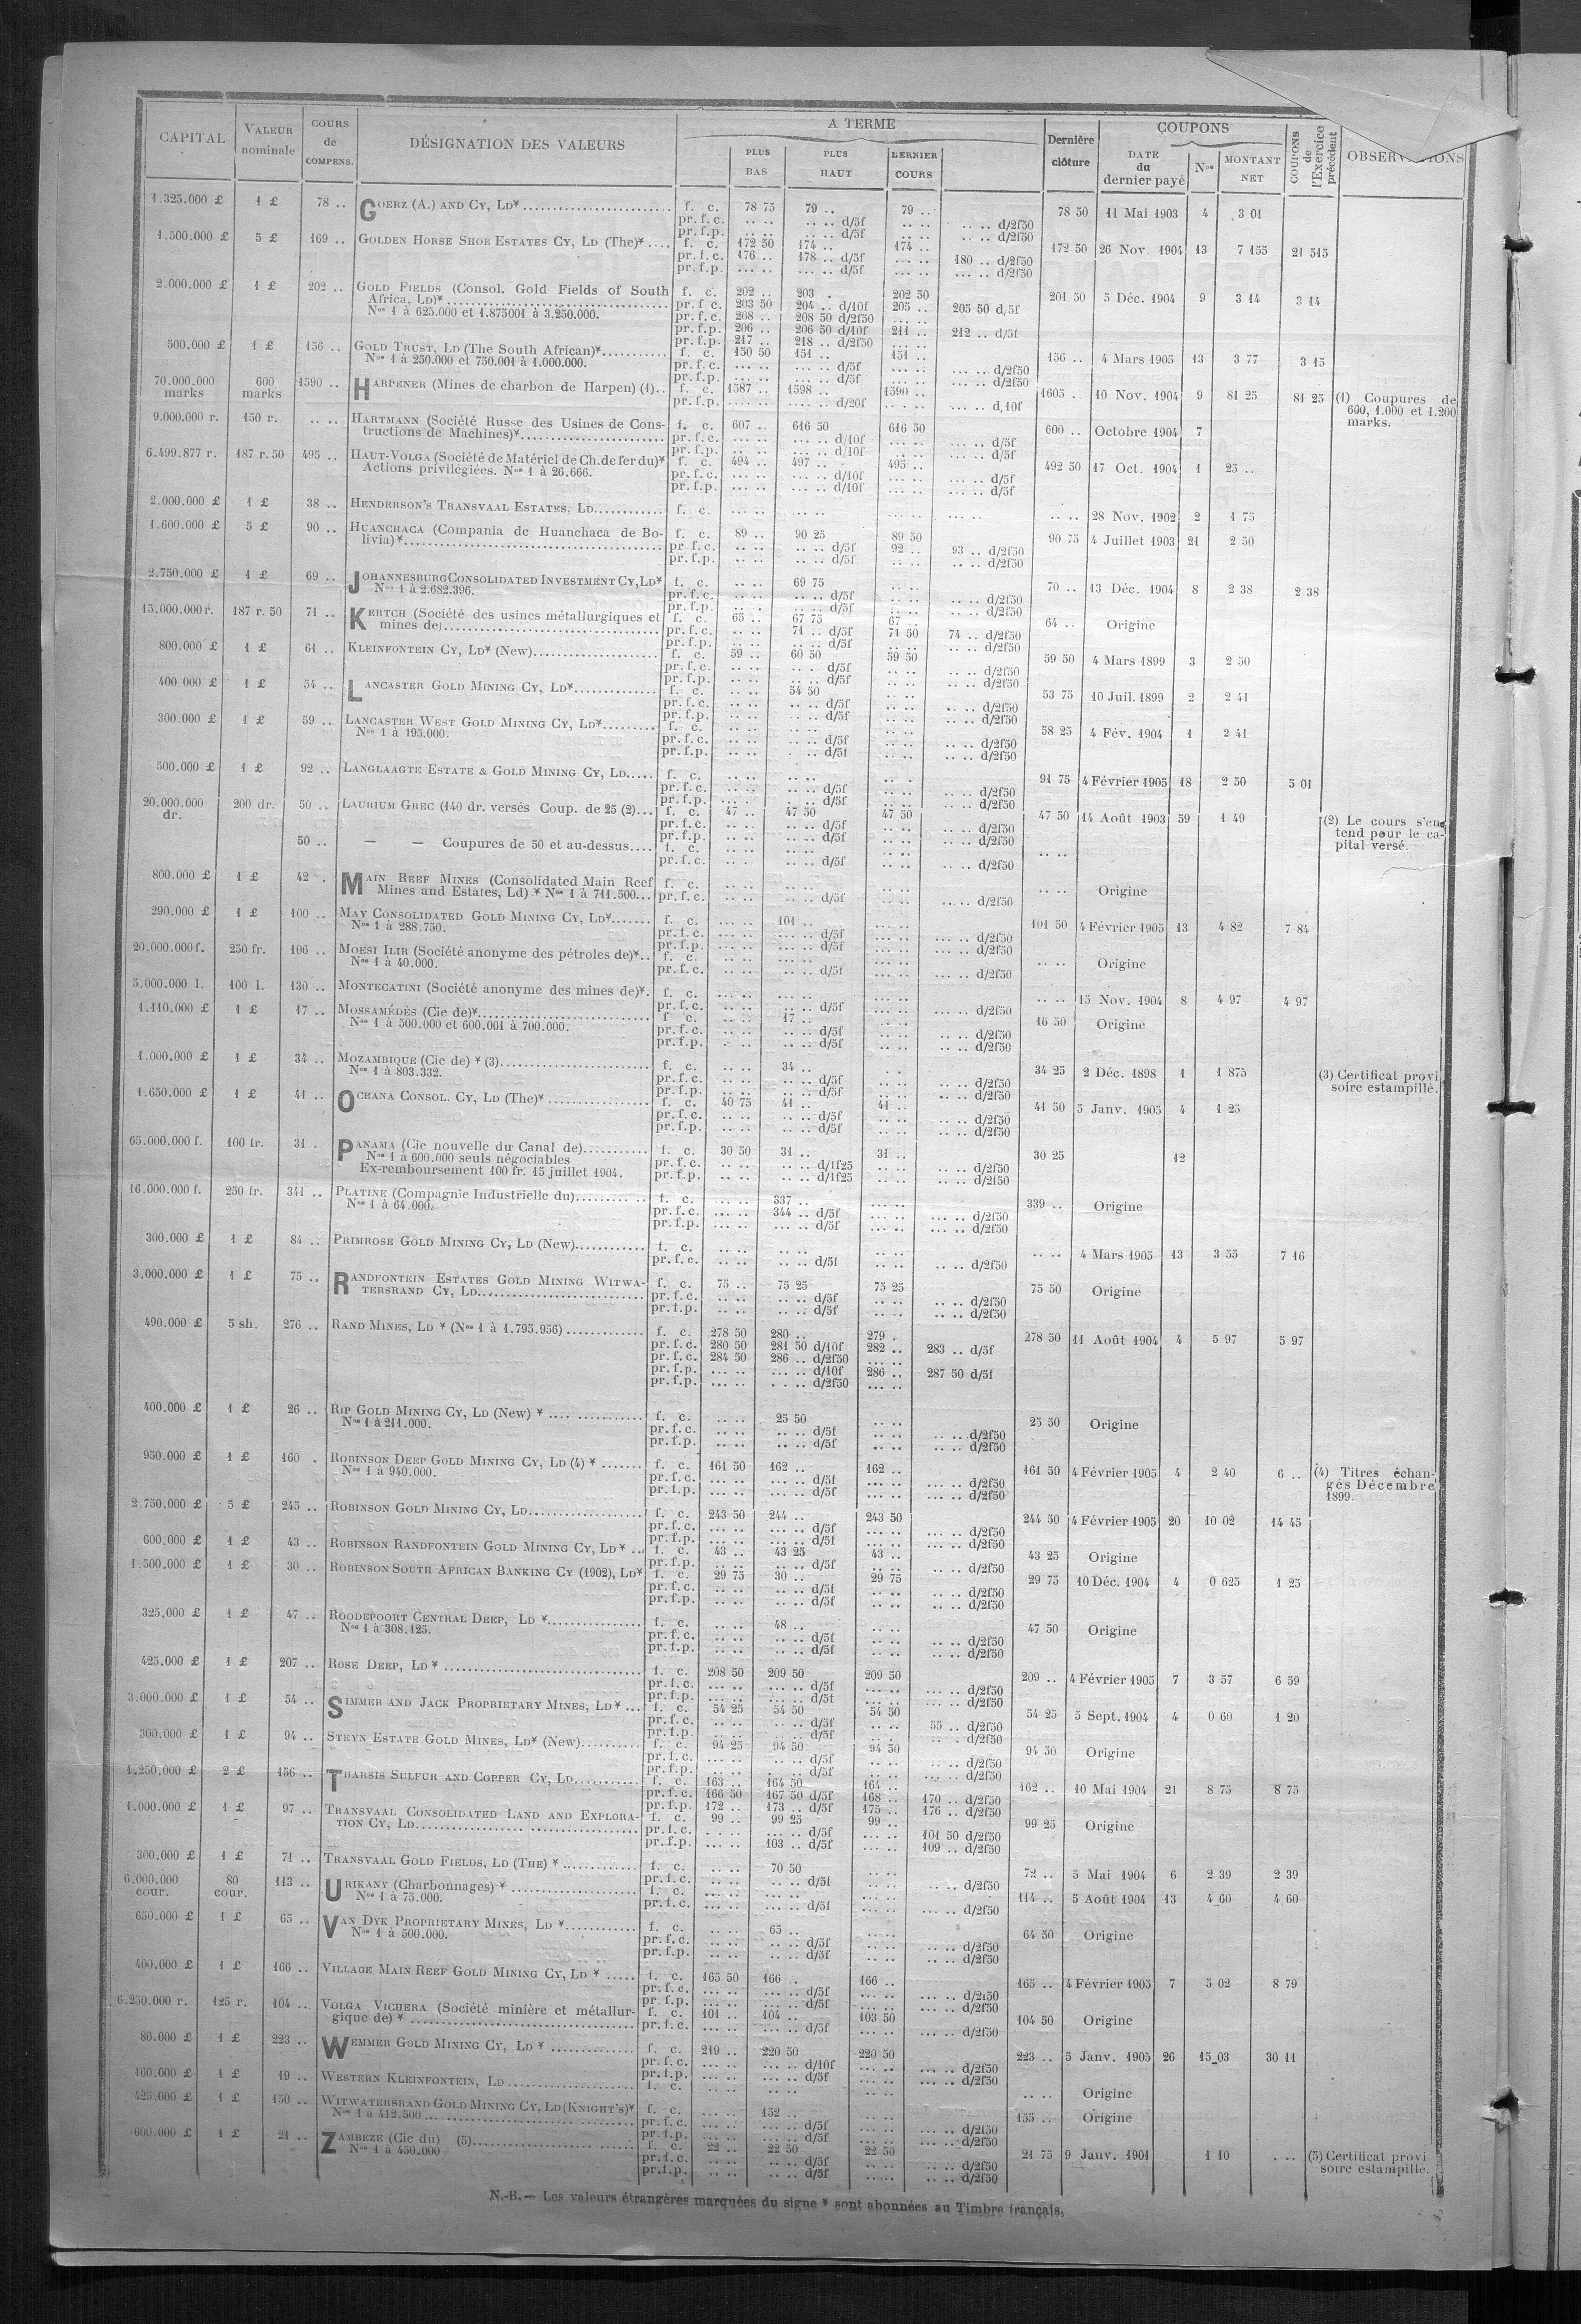 CAPITAL VALEUR nominale COURS de COMPENS. DÉSIGNATION DES VALEURS A TERME PLUS BAS PLUS HAUT DERNIER COURS Dernière clôture COUPONS DATE du dernier payé Nos MONTANT NET COUPONS de l'Exercice précédent
1.325.000 £ 1 £ 78 .. GOERZ (A.) AND CY, LD* f. c. 78 75 79 .. 79 .. 78 50 11 Mai 1903 4 3 01
pr. f. c. .. .. .. .. d/5f .. .. .. .. d/2f50
pr. f. p. .. .. .. .. d/5f .. .. .. .. d/2f50
1.500.000 £ 5 £ 169 .. GOLDEN HORSE SHOE ESTATES CY, LD (The)* f. c. 172 50 174 .. 174 .. 172 50 26 Nov. 1904 13 7 155 21 515
pr. f. c. 176 .. 178 .. d/5f .... .. 180 .. d/2f50
pr. f. p. .... .. .... .. d/5f .... .. .... .. d/2f50
2.000.000 £ 1 £ 202 .. GOLD FIELDS (Consol. Gold Fields of South Africa, LD)* f. c. 202 .. 203 . 202 50 201 50 5 Déc. 1904 9 3 14 3 14
Nos 1 à 625.000 et 1.875001 à 3.250.000. pr. f. c. 203 50 204 .. d/10f 205 .. 205 50 d/5f
pr. f. c. 208 .. 208 50 d/2f50 .... ..
pr. f. p. 206 .. 206 50 d/10f 211 .. 212 .. d/5f
pr. f. p. 217 .. 218 .. d/2f50 .... ..
500.000 £ 1 £ 156 .. GOLD TRUST, LD (The South African)* f. c. 150 50 151 .. 151 .. 156 .. 4 Mars 1905 13 3 77 3 15
Nos 1 à 250.000 et 750.001 à 1.000.000. pr. f. c. .... .. .... .. d/5f .... .. .... .. d/2f50
pr. f. p. .... .. .... .. d/5f .... .. .... .. d/2f50
70.000.000 marks 600 marks 1590 .. HARPENER (Mines de charbon de Harpen) (1).. f. c. 1587 .. 1598 .. 1590 .. 1605 . 10 Nov. 1904 9 81 25 81 25 (1) Coupures de 600, 1.000 et 1.200 marks.
pr. f. p. .. d/20f .. d/10f
9.000.000 r. 150 r. .. .. HARTMANN (Société Russe des Usines de Constructions de Machines)* f. c. 607 .. 616 50 616 50 600 .. Octobre 1904 7
pr. f. c. .... .. .... .. d/10f .... .. .... .. d/5f
pr. f. p. .... .. .... .. d/10f .... .. .... .. d/5f
6.499.877 r. 187 r. 50 495 .. HAUT-VOLGA (Société de Matériel de Ch. de fer du)* f. c. 494 .. 497 .. 495 .. 492 50 17 Oct. 1904 1 25 ..
Actions privilégiées. Nos 1 à 26.666. pr. f. c. .... .. .... .. d/10f .... .. .... .. d/5f
pr. f. p. .... .. .... .. d/10f .... .. .... .. d/5f
2.000.000 £ 1 £ 38 .. HENDERSON'S TRANSVAAL ESTATES, LD f. c. .... .. .. .. 28 Nov. 1902 2 1 75
1.600.000 £ 5 £ 90 .. HUANCHACA (Compania de Huanchaca de Bolivia)* f. c. 89 .. 90 25 89 50 90 75 4 Juillet 1903 21 2 50
pr. f. c. .. .. .. .. d/5f 92 .. 93 .. d/2f50
pr. f. p. .. .. .. .. d/5f .. .. .. .. d/2f50
2.750.000 £ 1 £ 69 .. JOHANNESBURG CONSOLIDATED INVESTMENT CY, LD* f. c. .. .. 69 75 .. .. 70 .. 13 Déc. 1904 8 2 38 2 38
Nos 1 à 2.682.396. pr. f. c. .. .. .. .. d/5f .. .. .. .. d/2f50
pr. f. p. .. .. .. .. d/5f .. .. .. .. d/2f50
15.000.000 r. 187 r. 50 71 .. KERTCH (Société des usines métallurgiques et mines de) f. c. 65 .. 67 75 67 .. 64 .. Origine
pr. f. c. .. .. 71 .. d/5f 71 50 74 .. d/2f50
pr. f. p. .. .. .. .. d/5f .. .. .. .. d/2f50
800.000 £ 1 £ 61 .. KLEINFONTEIN CY, LD* (New) f. c. 59 .. 60 50 59 50 59 50 4 Mars 1899 3 2 50
pr. f. c. .. .. .. . d/5f .. .. .. .. d/2f50
pr. f. p. .. .. .. .. d/5f .. .. .. .. d/2f50
400 000 £ 1 £ 54 .. LANCASTER GOLD MINING CY, LD* f. c. .. .. 54 50 .. .. 53 75 10 Juil. 1899 2 2 41
pr. f. c. .. .. .. .. d/5f .. .. .. .. d/2f50
pr. f. p. .. .. .. .. d/5f .. .. .. .. d/2f50
300.000 £ 1 £ 59 .. LANCASTER WEST GOLD MINING CY, LD* f. c. .. .. 58 25 4 Fév. 1904 1 2 41
Nos 1 à 195.000. pr. f. c. .. .. .. .. d/5f .. .. .. .. d/2f50
pr. f. p. .. .. . .. d/5f .. .. .. .. d/2f50
500.000 £ 1 £ 92 .. LANGLAAGTE ESTATE & GOLD MINING CY, LD f. c. .. .. .. .. 91 75 4 Février 1905 18 2 50 5 01
pr. f. c. .. .. .. .. d/5f .. .. .. .. d/2f50
pr. f. p. .. .. .. .. d/5f .. .. .. .. d/2f50
20.000.000 dr. 200 dr. 50 .. LAURIUM GREC (140 dr. versés Coup. de 25 (2)... f. c. 47 .. 47 50 47 50 47 50 14 Août 1903 59 1 49 (2) Le cours s'entend pour le capital versé.
pr. f. c. .. .. .. .. d/5f .. .. .. .. d/2f50
pr. f. p. .. .. .. .. d/5f .. .. .. .. d/2f50
50 .. — — Coupures de 50 et au-dessus.... f. c. .. .. .. ..
pr. f. c. .. .. .. .. d/5f .. .. .. .. d/2f50
800.000 £ 1 £ 42 . MAIN REEF MINES (Consolidated Main Reef Mines and Estates, Ld) * Nos 1 à 711.500... f. c. .. .. .. .. Origine
pr. f. c. .. .. .. .. d/5f .. .. .. .. d/2f50
290.000 £ 1 £ 100 .. MAY CONSOLIDATED GOLD MINING CY, LD* f. c. .... .. 101 .. 101 50 4 Février 1905 13 4 82 7 84
Nos 1 à 288.750. pr. f. c. .... .. .... .. d/5f .... .. .... .. d/2f50
pr. f. p. .. .. .... .. d/5f .... .. .... .. d/2f50
20.000.000 f. 250 fr. 106 .. MOESI ILIR (Société anonyme des pétroles de)*.. f. c. .. .. .. .. Origine
Nos 1 à 40.000. pr. f. c. .. .. .. .. d/5f .... .. .... .. d/2f50
5.000.000 l. 100 l. 130 .. MONTECATINI (Société anonyme des mines de)*. f. c. .... .. .... .. .. .. 15 Nov. 1904 8 4 97 4 97
pr. f. c. .. .. .. .. d/5f .... .. .... .. d/2f50
1.110.000 £ 1 £ 17 .. MOSSAMÉDÈS (Cie de)* f. c. .. .. 17 .. 16 50 Origine
Nos 1 à 500.000 et 600.001 à 700.000. pr. f. c. .. .. .. .. d/5f .. .. .. .. d/2f50
pr. f. p. .. .. .. .. d/5f .. .. .. .. d/2f50
1.000.000 £ 1 £ 34 .. MOZAMBIQUE (Cie de) * (3) f. c. .. .. 34 .. 34 25 2 Déc. 1898 1 1 875 (3) Certificat provisoire estampillé.
Nos 1 à 803.332. pr. f. c. .. .. .. .. d/5f .. .. .. .. d/2f50
pr. f. p. .. .. .. .. d/5f .. .. .. .. d/2f50
1.650.000 £ 1 £ 41 .. OCEANA CONSOL. CY, LD (The)* f. c. 40 75 41 .. 41 .. 41 50 5 Janv. 1905 4 1 25
pr. f. c. .. .. .. .. d/5f .. .. .. .. d/2f50
pr. f. p. .. .. .. .. d/5f .. .. .. .. d/2f50
65.000.000 f. 100 fr. 31 . PANAMA (Cie nouvelle du Canal de) f. c. 30 50 31 .. 31 .. 30 25 12
Nos 1 à 600.000 seuls négociables pr. f. c. .. .. .. .. d/1f25 .. .. .. .. d/2f50
Ex-remboursement 100 fr. 15 juillet 1904. pr. f. p. .. .. .. .. d/1f25 .. .. .. .. d/2f50
16.000.000 f. 250 fr. 341 .. PLATINE (Compagnie Industrielle du) f. c. .... .. 337 .. 339 .. Origine
Nos 1 à 64.000. pr. f. c. .... .. 344 .. d/5f .... .. .... .. d/2f50
pr. f. p. .... .. .... .. d/5f .... .. .... .. d/2f50
300.000 £ 1 £ 84 .. PRIMROSE GOLD MINING CY, LD (New) f. c. .. .. .. .. .. .. 4 Mars 1905 13 3 55 7 16
pr. f. c. .. .. .. .. d/5f .. .. .. .. d/2f50
3.000.000 £ 1 £ 75 .. RANDFONTEIN ESTATES GOLD MINING WITWATERSRAND CY, LD f. c. 75 .. 75 25 75 25 75 50 Origine
pr. f. c. .. .. .. .. d/5f .. .. .. .. d/2f50
pr. f. p. .. .. .. .. d/5f .. .. .. .. d/2f50
490.000 £ 5 sh. 276 .. RAND MINES, LD * (Nos 1 à 1.795.956) f. c. 278 50 280 .. 279 . 278 50 11 Août 1904 4 5 97 5 97
pr. f. c. 280 50 281 50 d/10f 282 .. 283 .. d/5f
pr. f. c. 284 50 286 .. d/2f50 .... ..
pr. f. p. .... .. .... .. d/10f 286 .. 287 50 d/5f
pr. f. p. .... .. . .. d/2f50 .... ..
400.000 £ 1 £ 26 .. RIP GOLD MINING CY, LD (New) * f. c. .. .. 25 50 .. .. 25 50 Origine
Nos 1 à 211.000. pr. f. c. .. .. .. .. d/5f .. .. .. .. d/2f50
pr. f. p. .. .. .. .. d/5f .. .. .. .. d/2f50
950.000 £ 1 £ 160 . ROBINSON DEEP GOLD MINING CY, LD (4) * f. c. 161 50 162 .. 162 .. 161 50 4 Février 1905 4 2 40 6 .. (4) Titres échangés Décembre 1899.
Nos 1 à 940.000. pr. f. c. .... .. .... .. d/5f .... .. .... .. d/2f50
pr. f. p. .... .. .... .. d/5f .... .. .... .. d/2f50
2.750.000 £ 5 £ 245 .. ROBINSON GOLD MINING CY, LD f. c. 243 50 244 .. 243 50 244 50 4 Février 1905 20 10 02 14 45
pr. f. c. .... .. .... .. d/5f .... .. .... .. d/2f50
pr. f. p. .... .. .... .. d/5f .... .. .... .. d/2f50
600.000 £ 1 £ 43 .. ROBINSON RANDFONTEIN GOLD MINING CY, LD * .. f. c. 43 .. 43 25 43 .. 43 25 Origine
pr. f. p. .. .. .. .. d/5f .. .. .. .. d/2f50
1.500.000 £ 1 £ 30 .. ROBINSON SOUTH AFRICAN BANKING CY (1902), LD* f. c. 29 75 30 .. 29 75 29 75 10 Déc. 1904 4 0 625 1 25
pr. f. c. .. .. .. .. d/5f .. .. .. .. d/2f50
pr. f. p. .. .. .. .. d/5f .. .. .. .. d/2f50
325.000 £ 1 £ 47 .. ROODEPOORT CENTRAL DEEP, LD * f. c. .. .. 48 .. 47 50 Origine
Nos 1 à 308.125. pr. f. c. .. .. .. .. d/5f .. .. .. .. d/2f50
pr. f. p. .. .. .. .. d/5f .. .. .. .. d/2f50
425.000 £ 1 £ 207 .. ROSE DEEP, LD * f. c. 208 50 209 50 209 50 209 .. 4 Février 1905 7 3 57 6 59
pr. f. c. .... .. .... .. d/5f .... .. .... .. d/2f50
pr. f. p. .... .. .... .. d/5f .... .. .... .. d/2f50
3.000.000 £ 1 £ 54 .. SIMMER AND JACK PROPRIETARY MINES, LD * ... f. c. 54 25 54 50 54 50 54 25 5 Sept. 1904 4 0 60 1 20
pr. f. c. .. .. .. .. d/5f .. .. 55 .. d/2f50
pr. f. p. .. .. .. .. d/5f .. .. .. .. d/2f50
300.000 £ 1 £ 94 .. STEYN ESTATE GOLD MINES, LD* (New) f. c. 94 25 94 50 94 50 94 50 Origine
pr. f. c. .... .. .. .. d/5f .... .. .... .. d/2f50
pr. f. p. .. .. .. .. d/5f .... .. .... .. d/2f50
1.250.000 £ 2 £ 156 .. THARSIS SULFUR AND COPPER CY, LD f. c. 163 .. 164 50 164 .. 162 .. 10 Mai 1904 21 8 75 8 75
pr. f. c. 166 50 167 50 d/5f 168 .. 170 .. d/2f50
pr. f. p. 172 .. 173 .. d/5f 175 .. 176 .. d/2f50
1.000.000 £ 1 £ 97 .. TRANSVAAL CONSOLIDATED LAND AND EXPLORATION CY, LD f. c. 99 .. 99 25 99 .. 99 25 Origine
pr. f. c. .. .. .... .. d/5f .... .. 101 50 d/2f50
pr. f. p. .... .. 103 .. d/5f .... .. 109 .. d/2f50
300.000 £ 1 £ 71 .. TRANSVAAL GOLD FIELDS, LD (THE) * f. c. .. .. 70 50 .. .. 72 .. 5 Mai 1904 6 2 39 2 39
pr. f. c. .. .. .. .. d/5f .. .. .. .. d/2f50
6.000.000 cour. 80 cour. 113 .. URIKANY (Charbonnages) * f. c. .... .. .... .. 114 .. 5 Août 1904 13 4 60 4 60
Nos 1 à 75.000. pr. f. c. .... .. .... .. d/5f .... .. .... .. d/2f50
650.000 £ 1 £ 65 .. VAN DYK PROPRIETARY MINES, LD * f. c. .. .. 65 .. 64 50 Origine
Nos 1 à 500.000. pr. f. c. .. .. .. .. d/5f .. .. .. .. d/2f50
pr. f. p. .. .. .. .. d/5f .. .. .. .. d/2f50
400.000 £ 1 £ 166 .. VILLAGE MAIN REEF GOLD MINING CY, LD * f. c. 165 50 166 .. 166 .. 165 .. 4 Février 1905 7 5 02 8 79
pr. f. c. .... .. .... .. d/5f .... .. .... .. d/2f50
pr. f. p. .... .. .... .. d/5f .... .. .... .. d/2f50
6.250.000 r. 125 r. 104 .. VOLGA VICHERA (Société minière et métallurgique de) * f. c. 101 .. 104 .. 103 50 104 50 Origine
pr. f. c. .... .. .... .. d/5f .... .. .... .. d/2f50
80.000 £ 1 £ 223 .. WEMMER GOLD MINING CY, LD * f. c. 219 .. 220 50 220 50 223 .. 5 Janv. 1905 26 15 03 30 11
pr. f. c. .... .. .... .. d/10f .... .. .... .. d/2f50
pr. f. p. .... .. .... .. d/5f .... .. .... .. d/2f50
160.000 £ 1 £ 19 .. WESTERN KLEINFONTEIN, LD f. c. .. .. .. .. Origine
425.000 £ 1 £ 150 .. WITWATERSRAND GOLD MINING CY, LD (KNIGHT'S)* f. c. .... .. 152 .. 155 .. Origine
Nos 1 à 412.500 pr. f. c. .... .. .... .. d/5f .... .. .... .. d/2f50
pr. f. p. .... .. .... .. d/5f .... .. .... .. d/2f50
600.000 £ 1 £ 21 .. ZAMBEZE (Cie du) (5) f. c. 22 .. 22 50 22 50 21 75 9 Janv. 1901 1 10 (5) Certificat provisoire estampillé.
Nos 1 à 450.000 pr. f. c. .. .. .. .. d/5f .. .. .. .. d/2f50
pr. f. p. .. .. .. .. d/5f .. .. .. .. d/2f50
N.-B. — Les valeurs étrangères marquées du signe * sont abonnées au Timbre français.